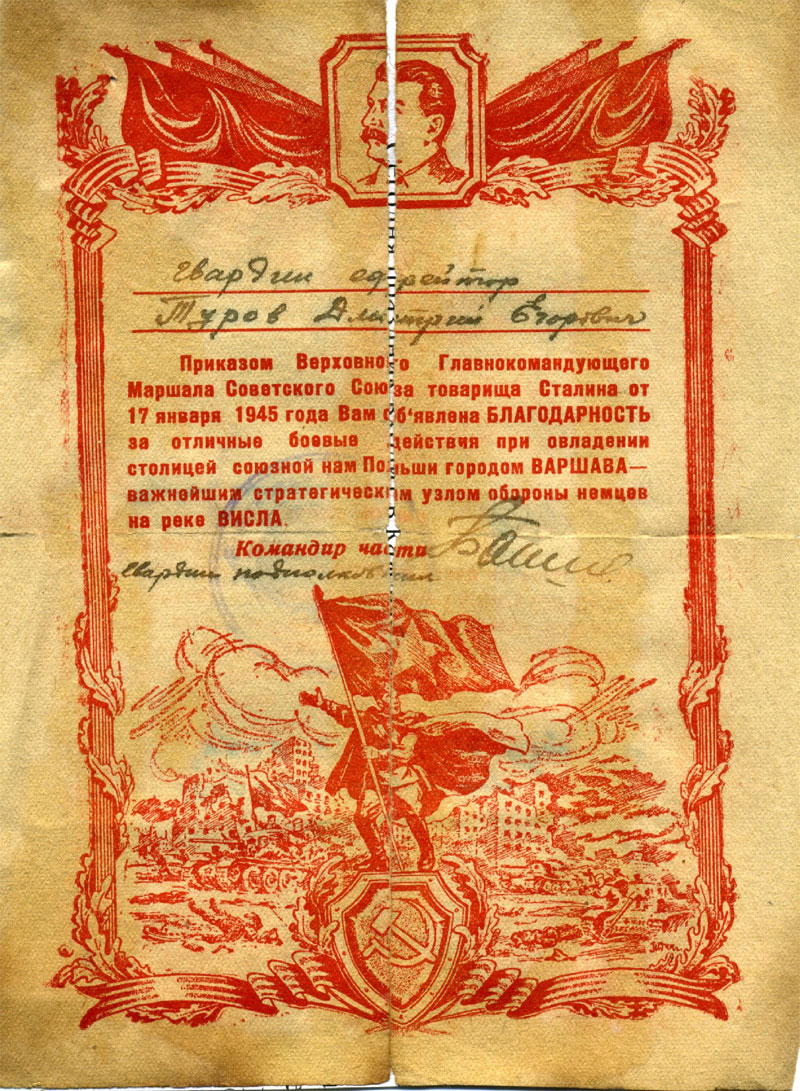 гвардии ефрейтор
Туров Дмитрий Егорович
Приказом Верховного Главнокомандующего
Маршала Советского Союза товарища Сталина от
17 января 1945 года Вам об‘явлена БЛАГОДАРНОСТЬ
за отличные боевые действия при овладении
столицей союзной нам Польши городом ВАРШАВА—
важнейшим стратегическим узлом обороны немцев
на реке ВИСЛА.
Командир части
гвардии подполковник